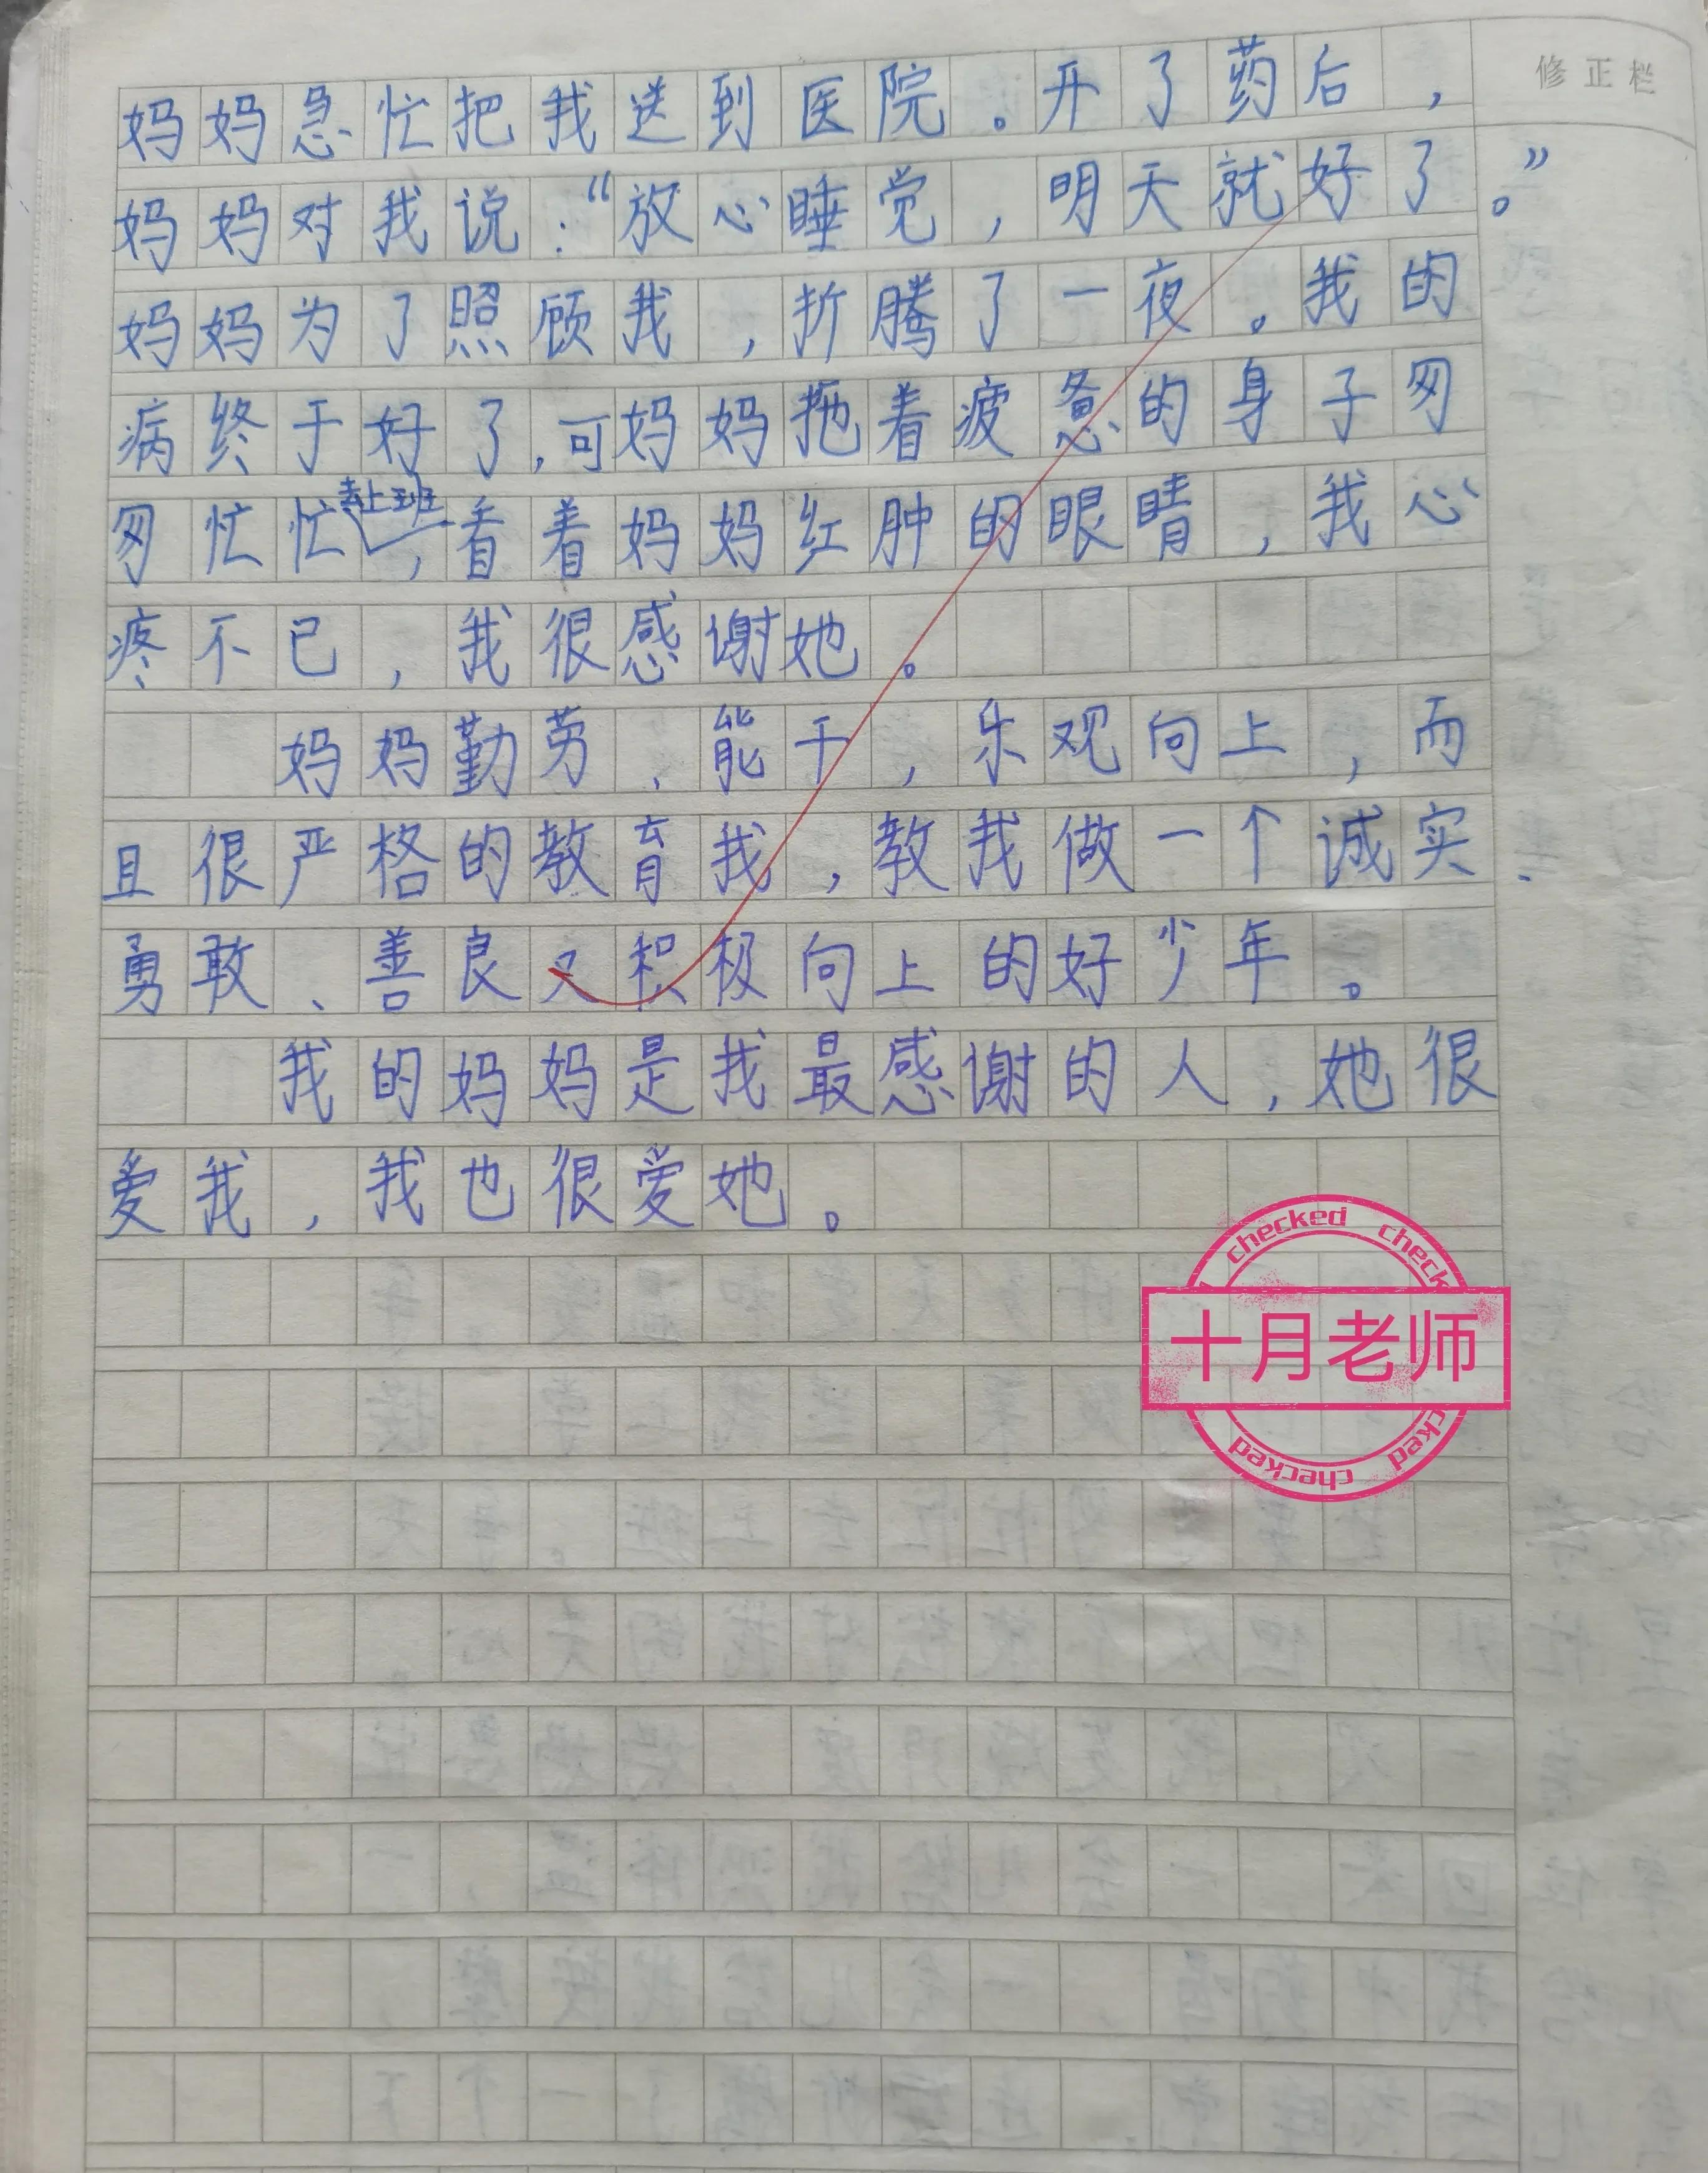 修正栏
妈妈急忙把我送到医院。开了药后，
妈妈对我说：“放心睡觉，明天就好了。”
妈妈为了照顾我，折腾了一夜。我的
病终于好了，可妈妈拖着疲惫的身子匆
匆忙忙去上班，看着妈妈红肿的眼睛，我心
疼不已，我很感谢她。
妈妈勤劳、能干，乐观向上，而
且很严格的教育我，教我做一个诚实、
勇敢、善良又积极向上的好少年。
我的妈妈是我最感谢的人，她很
爱我，我也很爱她。
checked checked
十月老师
checked checked